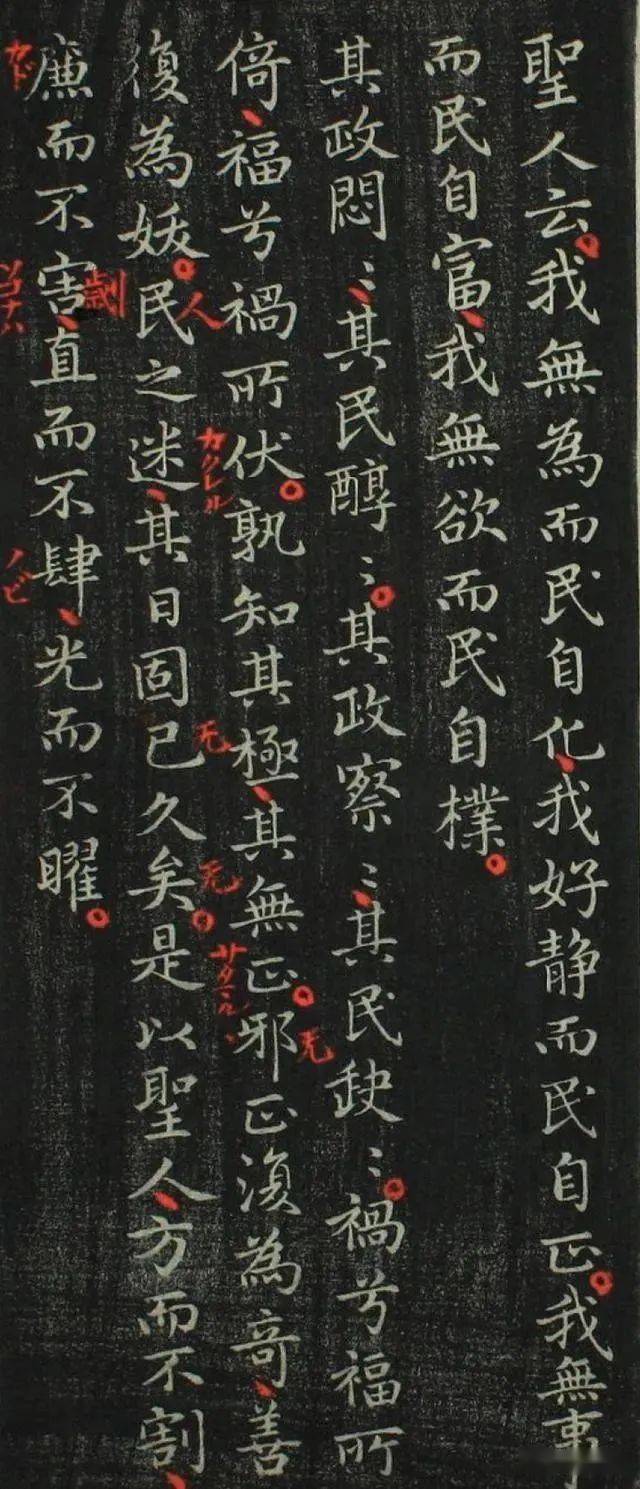 聖人云我無為而民自化我好静而民自正我無事
而民自富我無欲而民自樸
其政悶〻其民醇〻其政察〻其民缺〻禍兮福所
倚福兮禍所伏孰知其極其無正邪正復為奇善
人
カクレル
无
无
サタマル
无
復為妖民之迷其日固已久矣是以聖人方而不割
廉而不害直而不肆光而不曜
劌
カド
ソコナハ
ノビ